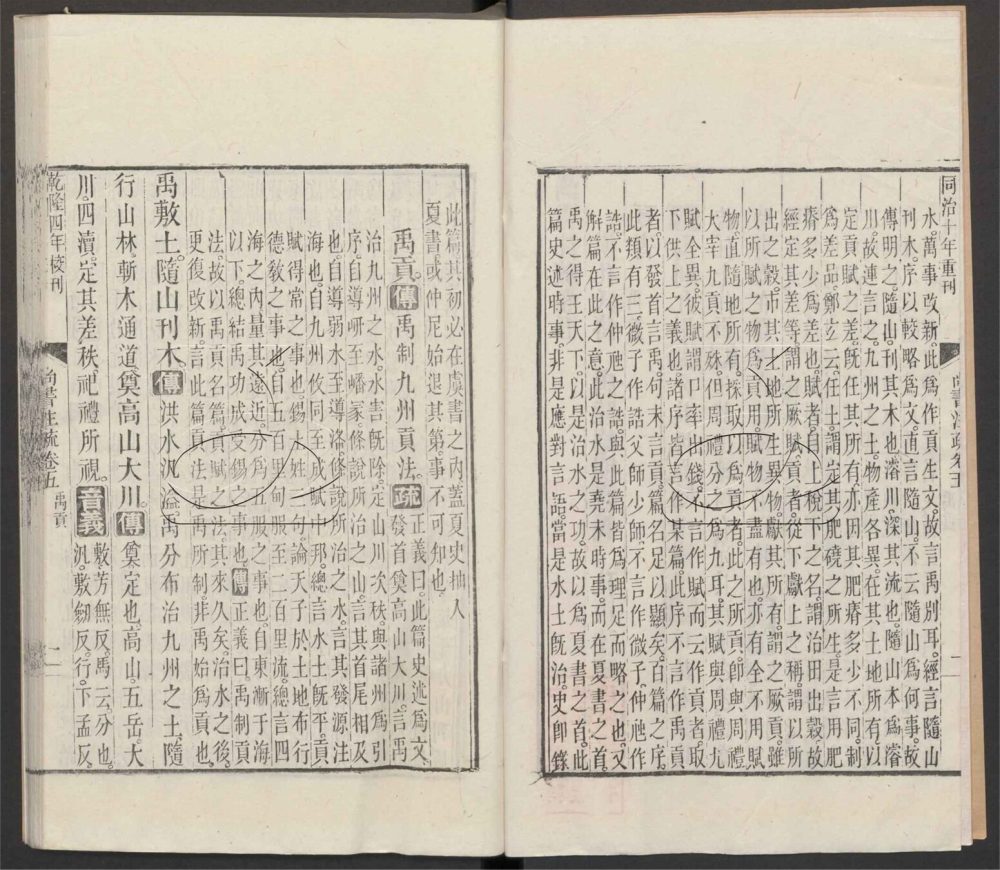 同治十年重刊 尚書注疏卷五 一
水。萬事改新。此爲作貢生文。故言禹別耳。經言隨山
刊木。序以較略爲文。直言隨山。不云隨山爲何事。故
傳明之。隨山。刊其木也。濬川。深其流也。隨山本爲濬
川。故連言之。九州之土。物產各異。在其土地所有。以
定貢賦之差。旣任其所有。亦因其肥瘠多少不同。制
爲差品。鄭玄云。任土。謂定其肥磽之所生。是言用肥
瘠多少爲差也。賦者。自上稅下之名。謂治田出穀。故
經定其差等。謂之厥賦。貢者。從下獻上之稱。謂以所
出之穀。市其土地所生異物。獻其所有。謂之厥貢。雖
以所賦之物爲貢用。賦物不盡有也。亦有全不用賦
物。直隨地所有。採取以爲貢者。此之所貢。卽與周禮
大宰九貢不殊。但周禮分之爲九耳。其賦與周禮九
賦全異。彼賦謂口率出錢。不言作賦而云作貢者。取
下供上之義也。諸序皆言作某篇。此序不言作禹貢
者。以發首言禹。句末言貢。篇名足以顯矣。百篇之序。
此類有三。微子作誥父師少師。不言作微子。仲虺作
誥。不言作仲虺之誥。與此篇皆爲理足而略之也。又
解篇在此之意。此治水是堯末時事。而在夏書之首。
禹之得王天下。以是治水之功。故以爲夏書之首。此
篇史述時事。非是應對言語。當是水土旣治。史卽錄
此篇。其初必在虞書之內。蓋夏史抽入
夏書。或仲尼始退其第。事不可知也。
禹貢。傳禹制九州貢法。疏正義曰。此篇史述爲文。
發首奠高山大川。言禹
治九州之水。水害旣除。定山川次秩。與諸州爲引
序。自導岍至嶓冢。條說所治之山。言其首尾相及
也。自導弱水至導洛。條說所治之水。言其發源注
海也。自九州攸同至成賦中邦。總言水土旣平。貢
賦得常之事也。錫土姓三句。論天子於土地布行
德敎之事也。自五百里甸服至二百里流。總言四
海之內。量其遠近。分爲五服之事也。自東漸于海
以下。總結禹功成受錫之事也。傳正義曰。禹制貢
法。故以禹貢名篇。貢賦之法。其來久矣。治水之後。
更復改新。言此篇貢法是禹所制。非禹始爲貢也。
禹敷土。隨山刊木。傳洪水汎溢。禹分布治九州之土。隨
行山林。斬木通道。奠高山大川。傳奠。定也。高山。五岳。大
川。四瀆。定其差秩。祀禮所視。音義敷。芳無反。馬云。分也。
汎。敷劒反。行。下孟反。
乾隆四年校刊 尚書注疏卷五 禹貢 二